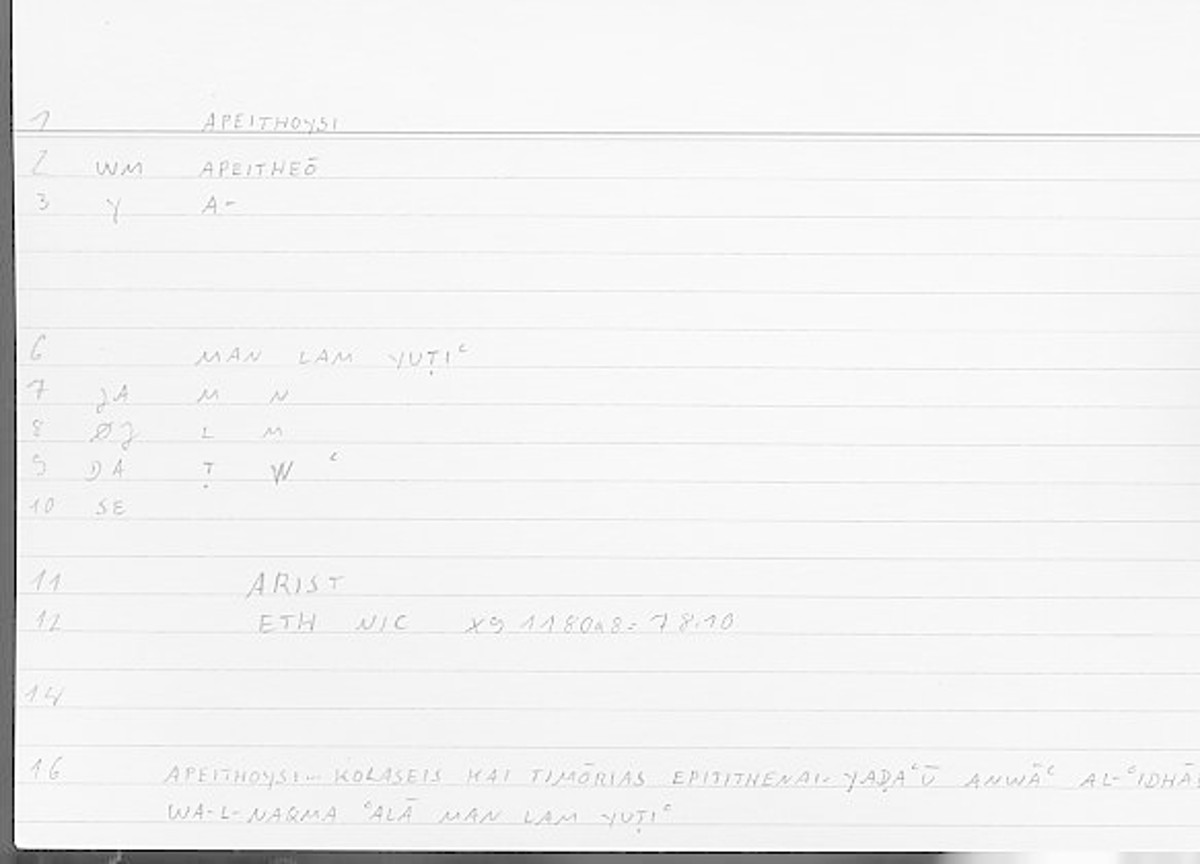 1 APEITHOYSI
2 WM APEITHEŌ
3 Y A-
6 MAN LAM YUṬIʿ
7 JA M N
8 ØJ L M
9 DA Ṭ W ʿ
10 SE
11 ARIST
12 ETH NIC X9 1180a8= 78.10
14
16 APEITHOYSI... KOLASEIS KAI TIMŌRIAS EPITITHENAI- YAḌAʿŪ ANWĀʿ AL-ʿIDHĀ
WA-L-NAQMA ʿALĀ MAN LAM YUṬIʿ